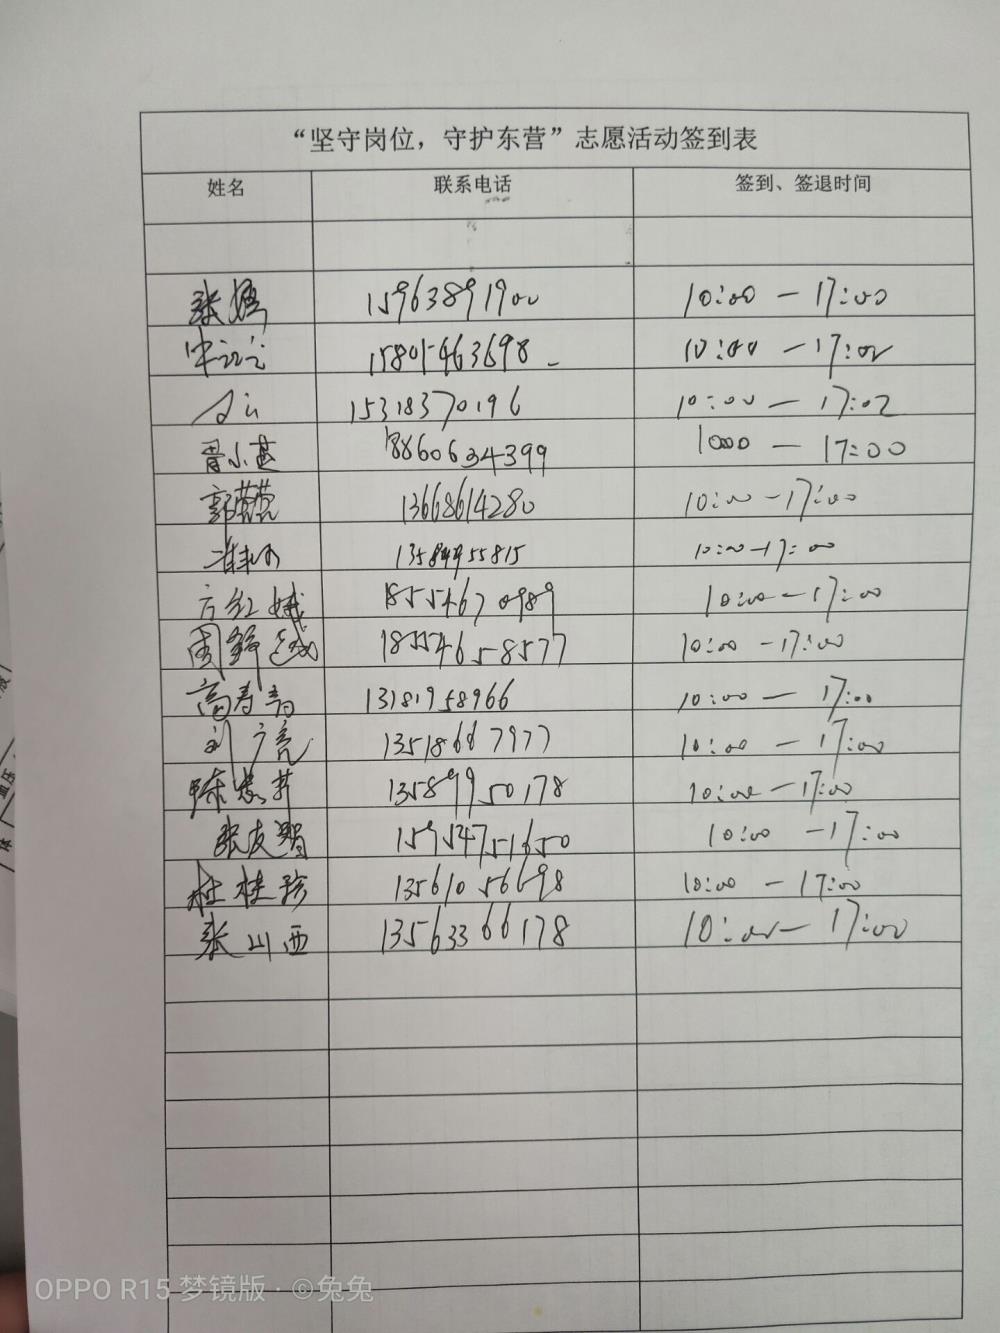 “坚守岗位，守护东营”志愿活动签到表
姓名 联系电话 签到、签退时间
张娟 15963891900 10:00 — 17:00
15805463698 10:00 — 17:00
15318370196 10:00 — 17:02
胥小甚 18860634399 1000 — 17:00
郭莹莹 13668614280 10:00 - 17:00
10:00 - 17:00
方红娥 18554670989 10:00 - 17:00
周 18554658577 10:00 - 17:00
高寿青 13181958966 10:00 — 17:00
刘广亮 13518667977 10:00 — 17:00
陈慧芹 13589950178 10:00 — 17:00
张友娟 15954751650 10:00 - 17:00
杜桂珍 13561056698 10:00 - 17:00
张山西 13563366178 10:00 — 17:00
OPPO R15 梦镜版 · ©兔兔